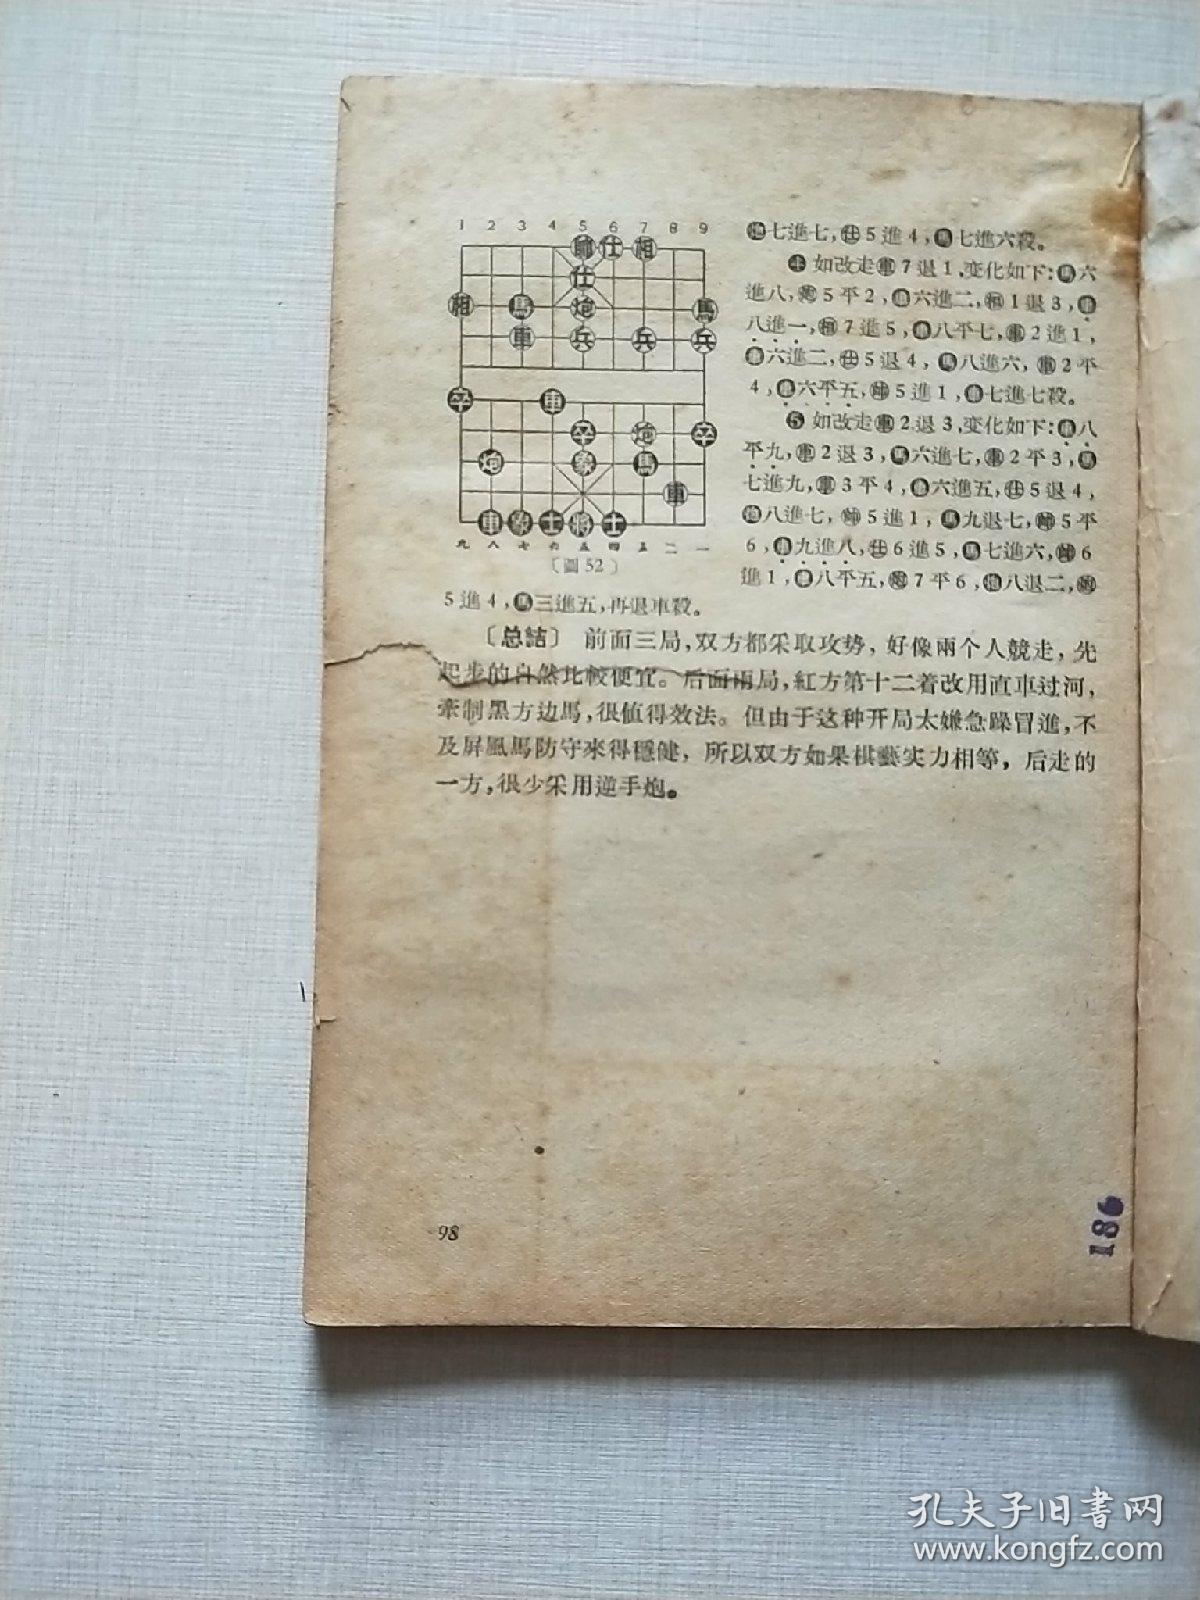 1 2 3 4 5 6 7 8 9
帥 仕 相
仕
相 馬 炮 馬
車 兵 兵 兵
卒 車
卒 炮 卒
炮 象 馬
車
車 象 士 將 士
九 八 七 六 五 四 三 二 一
〔圖 52〕
炮七進七,仕5進4,馬七進六殺。
如改走車7退1,变化如下:馬六
進八,炮5平2,車六進二,相1退3,車
八進一,相7進5,車八平七,車2進1,
車六進二,仕5退4,馬八進六,車2平
4,車六平五,帥5進1,車七進七殺。
5 如改走車2退3,变化如下:車八
平九,車2退3,馬六進七,車2平3,馬
七進九,車3平4,車六進五,仕5退4,
炮八進七,帥5進1,馬九退七,帥5平
6,車九進八,仕6進5,馬七進六,帥6
進1,車八平五,炮7平6,炮八退二,炮
5進4,馬三進五,再退車殺。
〔总結〕 前面三局,双方都采取攻势,好像兩个人競走,先
起步的自然比較便宜。后面兩局,紅方第十二着改用直車过河,
牽制黑方边馬,很值得效法。但由于这种开局太嫌急躁冒進,不
及屏風馬防守來得穩健,所以双方如果棋藝实力相等,后走的
一方,很少采用逆手炮。
98
186
孔夫子旧书网
www.kongfz.com